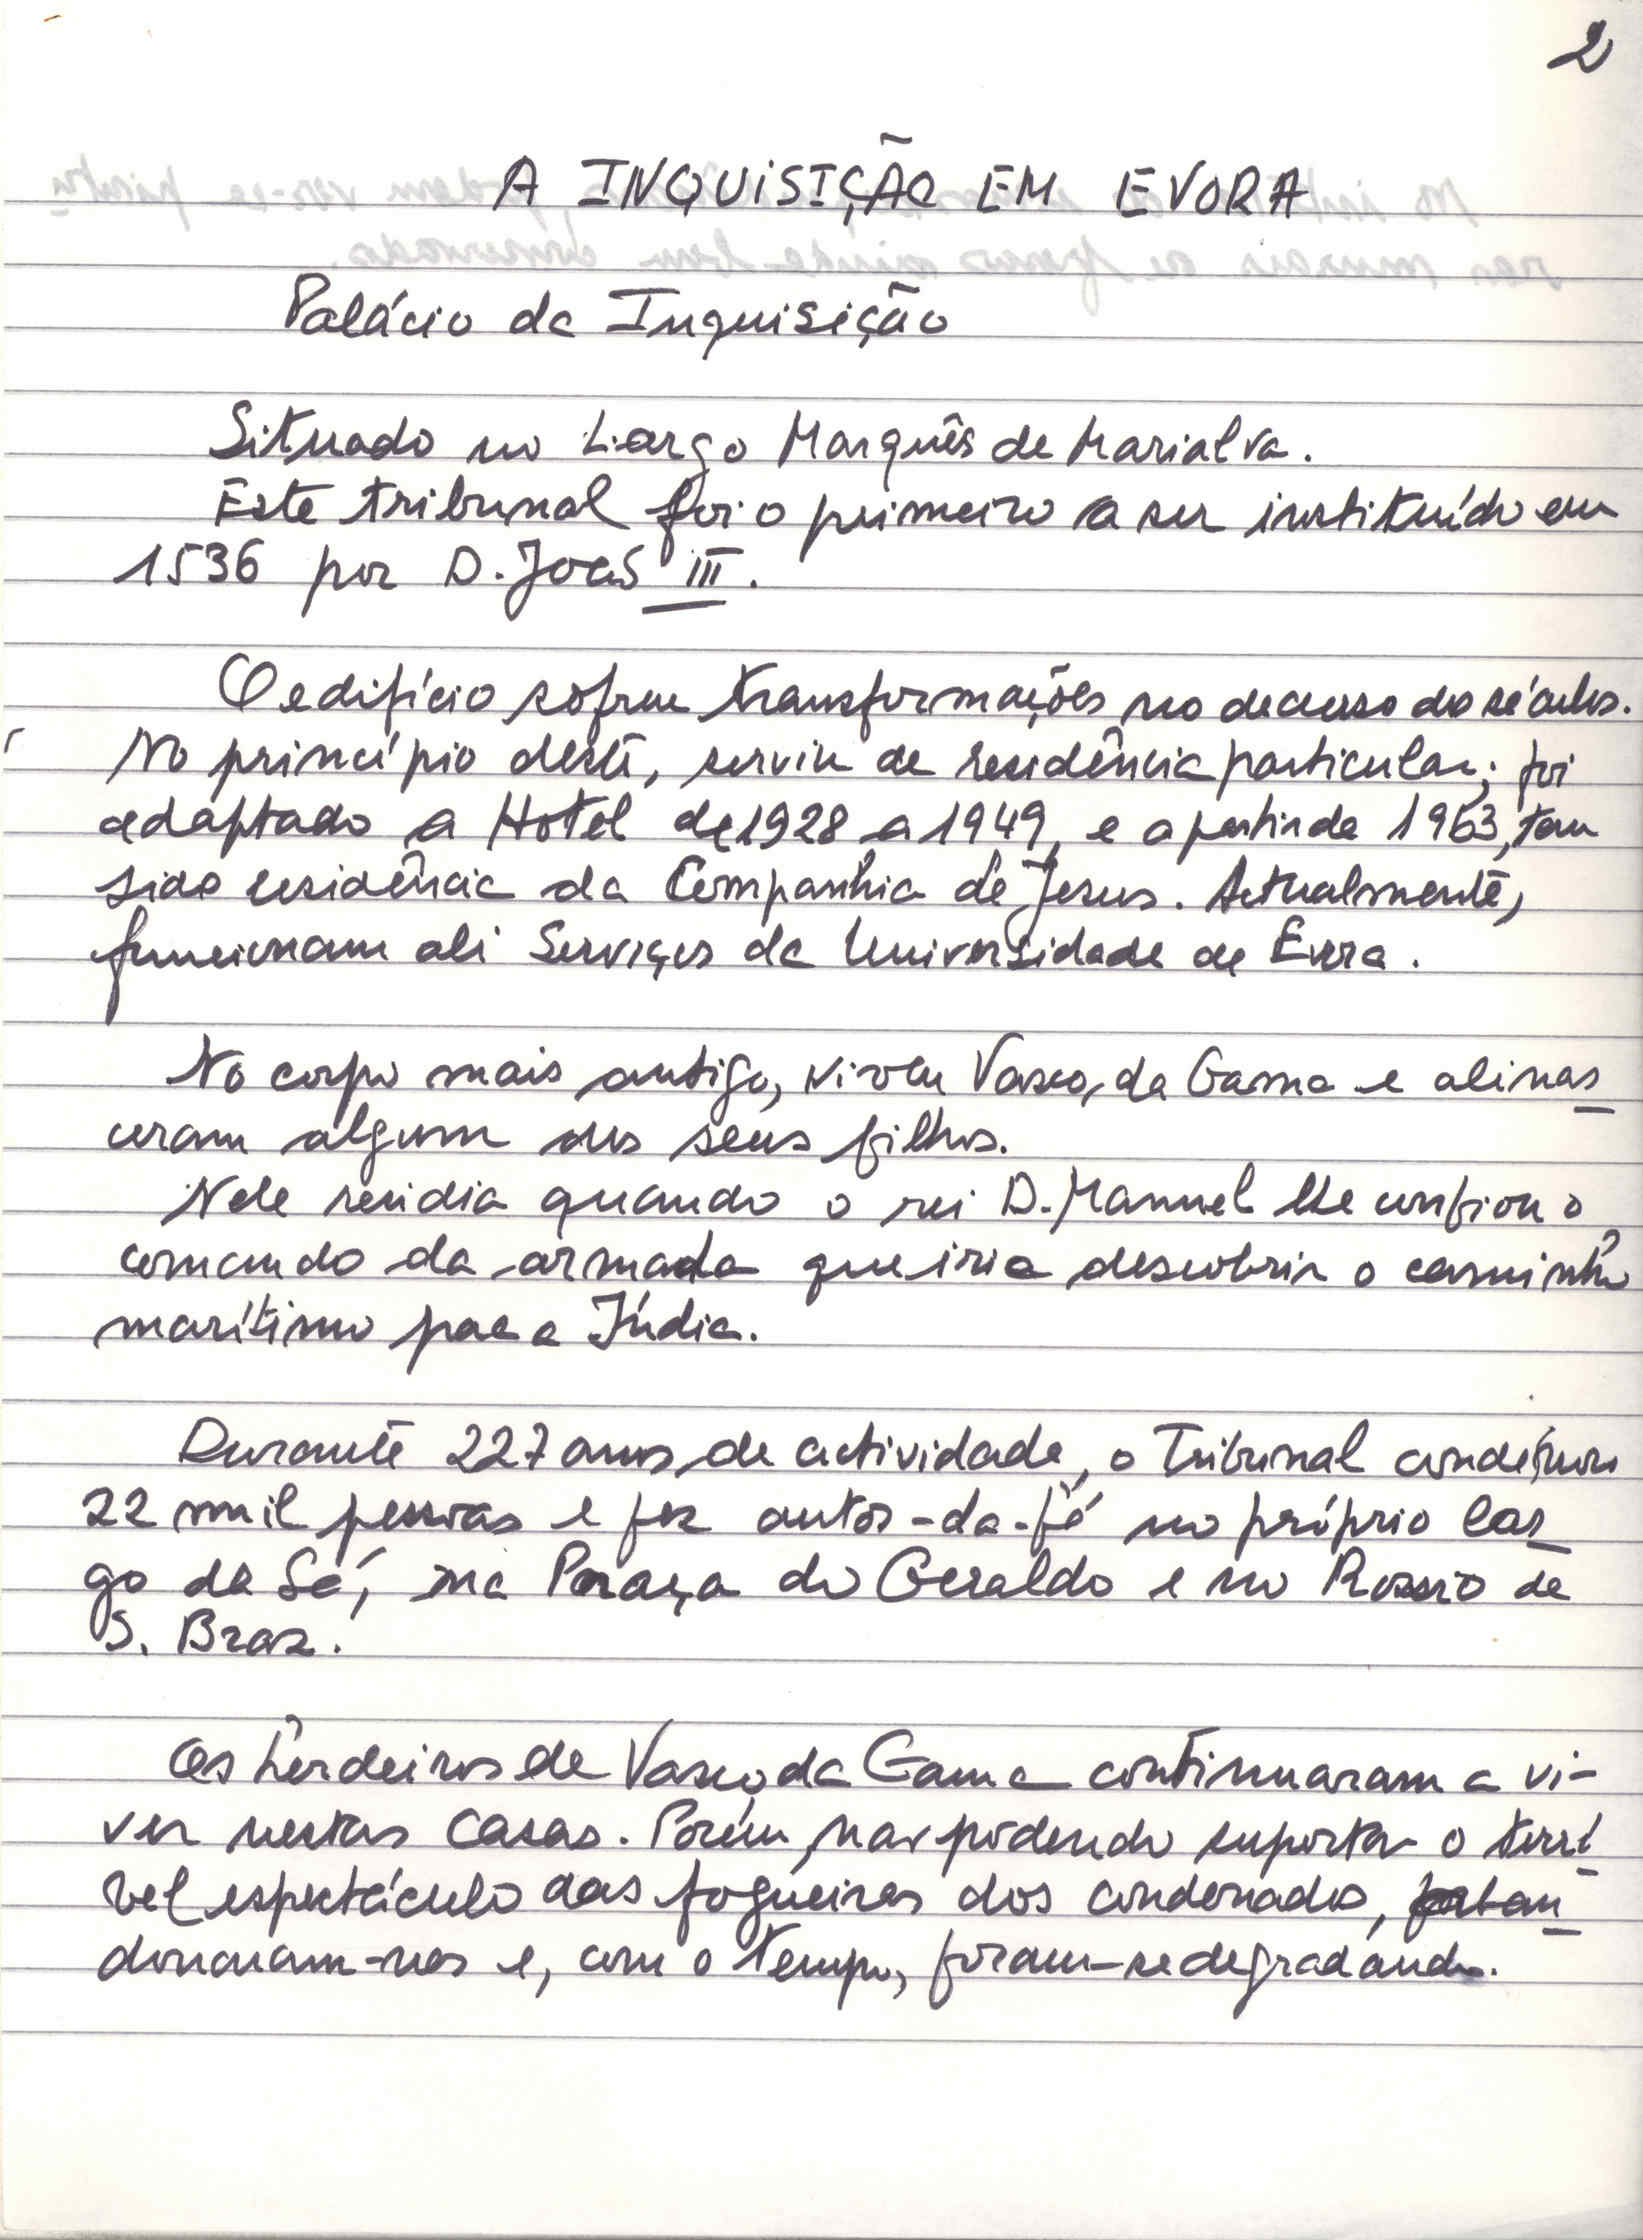 2
A INQUISIÇÃO EM EVORA
Palácio da Inquisição
Situado no Largo Marquês de Marialva.
Este tribunal foi o primeiro a ser instituído em
1536 por D. João III.
O edifício sofreu transformações no decurso do séculos.
No princípio deste, serviu de residência particular; foi
adaptado a Hotel de 1928 a 1949, e a partir de 1963, tem
sido residência da Companhia de Jesus. Actualmente,
funcionam ali Serviços da Universidade de Évora.
No corpo mais antigo, viveu Vasco da Gama e ali nas
ceram algum dos seus filhos.
Nele residia quando o rei D. Manuel lhe confiou o
comando da armada que iria descobrir o caminho
marítimo para a Índia.
Durante 227 anos de actividade, o Tribunal condenou
22 mil pessoas e fez autos-da-fé no próprio lar
go da Sé, na Praça do Geraldo e no Rossio de
S. Braz.
Os herdeiros de Vasco da Gama continuaram a vi-
ver nestas casas. Porém, não podendo suportar o terrí
vel espectáculo das fogueiras dos condenados, aban
donaram-nas e, com o tempo, foram-se degradando.
No interior podem ver-se pintu
ras murais de frescos ainda bem conservados.